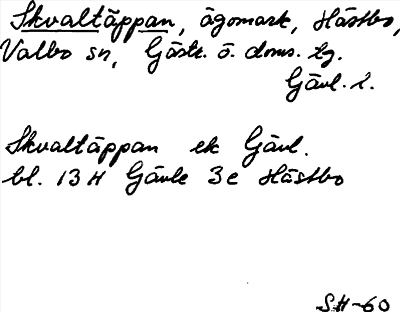 Skvaltäppan, ägomark, Hästbo,
Valbo sn, Gästr. ö. doms. tg.
Gävl. l.
Skvaltäppan ek Gävl.
bl. 13 H Gävle 3e Hästbo
S.H-60